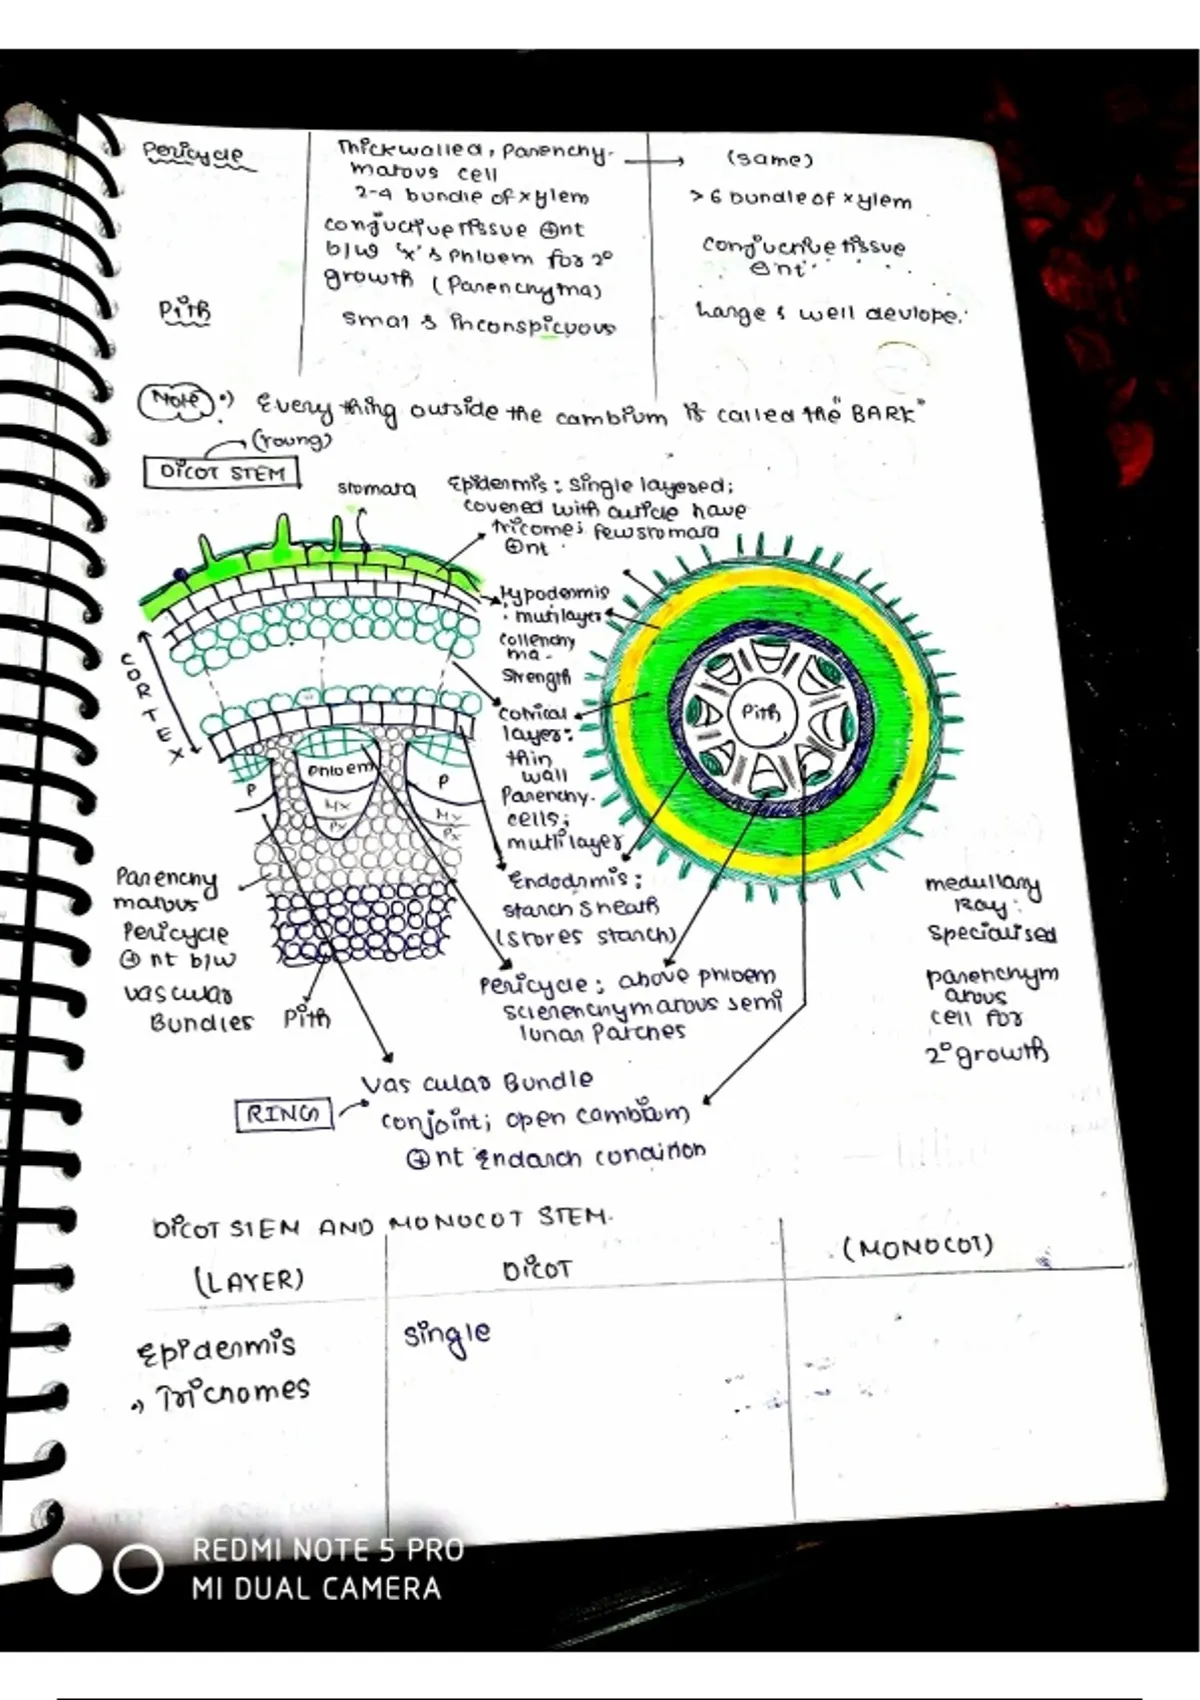 Pericycle
Thickwalled, Parenchy-
matous cell
(same)
2-4 bundle of xylem
>6 bundle of xylem
conjuctive tissue ⊕nt
b/w 'x' & Phloem for 2°
growth (Parenchyma)
conjuctive tissue
⊕nt
Pith
small & inconspicuous
Large & well devlope.
Note •) Every thing outside the cambium is called the "BARK"
(Young)
DICOT STEM
stomata
Epidermis : single layered;
covered with cuticle have
tricome; few stomata
⊕nt
Hypodermis
: mutilayer
collenchy
ma -
Strength
CORTEX
Cotrical
layer:
thin
wall
Parenchy.
cells;
mutlilayer
Pith
Phloem
P
P
Mx
Px
Mx
Px
Endodermis;
starch sheath
(stores starch)
Parenchy
matous
Pericycle
⊕nt b/w
vascular
Bundles
Pith
Pericycle; above phloem
sclerenchymatous semi
lunar Patches
medullary
Ray:
specialised
parenchym
atous
cell for
2° growth
Vascular Bundle
RING
conjoint; open cambium
⊕nt Endarch condition
DICOT STEM AND MONOCOT STEM.
(LAYER)
DICOT
(MONOCOT)
Epidermis
single
•) Trichomes
REDMI NOTE 5 PRO
MI DUAL CAMERA